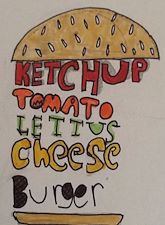 KETCHUP
TOMATO
LETTUS
cheese
Burger